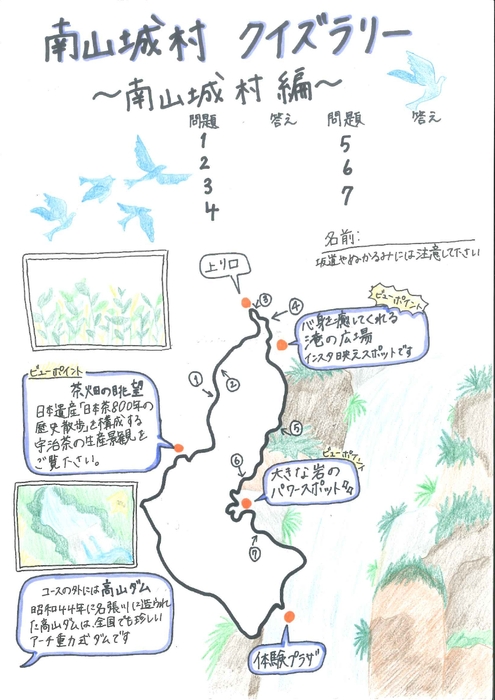 南山城村 クイズラリー
～南山城村編～
問題 答え 問題 答え
1 5
2 6
3 7
4
名前:
坂道やぬかるみには注意してださい
上り口
③ ④
ビューポイント
心身を癒してくれる
滝の広場
インスタ映えスポットです
ビューポイント
茶畑の眺望
日本遺産「日本茶800年の
歴史散歩」を構成する
宇治茶の生産景観を
ご覧ださい。
① ②
⑤
⑥
ビューポイント
大きな岩の
パワースポット
⑦
コースの外には高山ダム
昭和44年に名張川に造られ
た高山ダムは、全国でも珍しい
アーチ重力式ダムです
体験プラザ